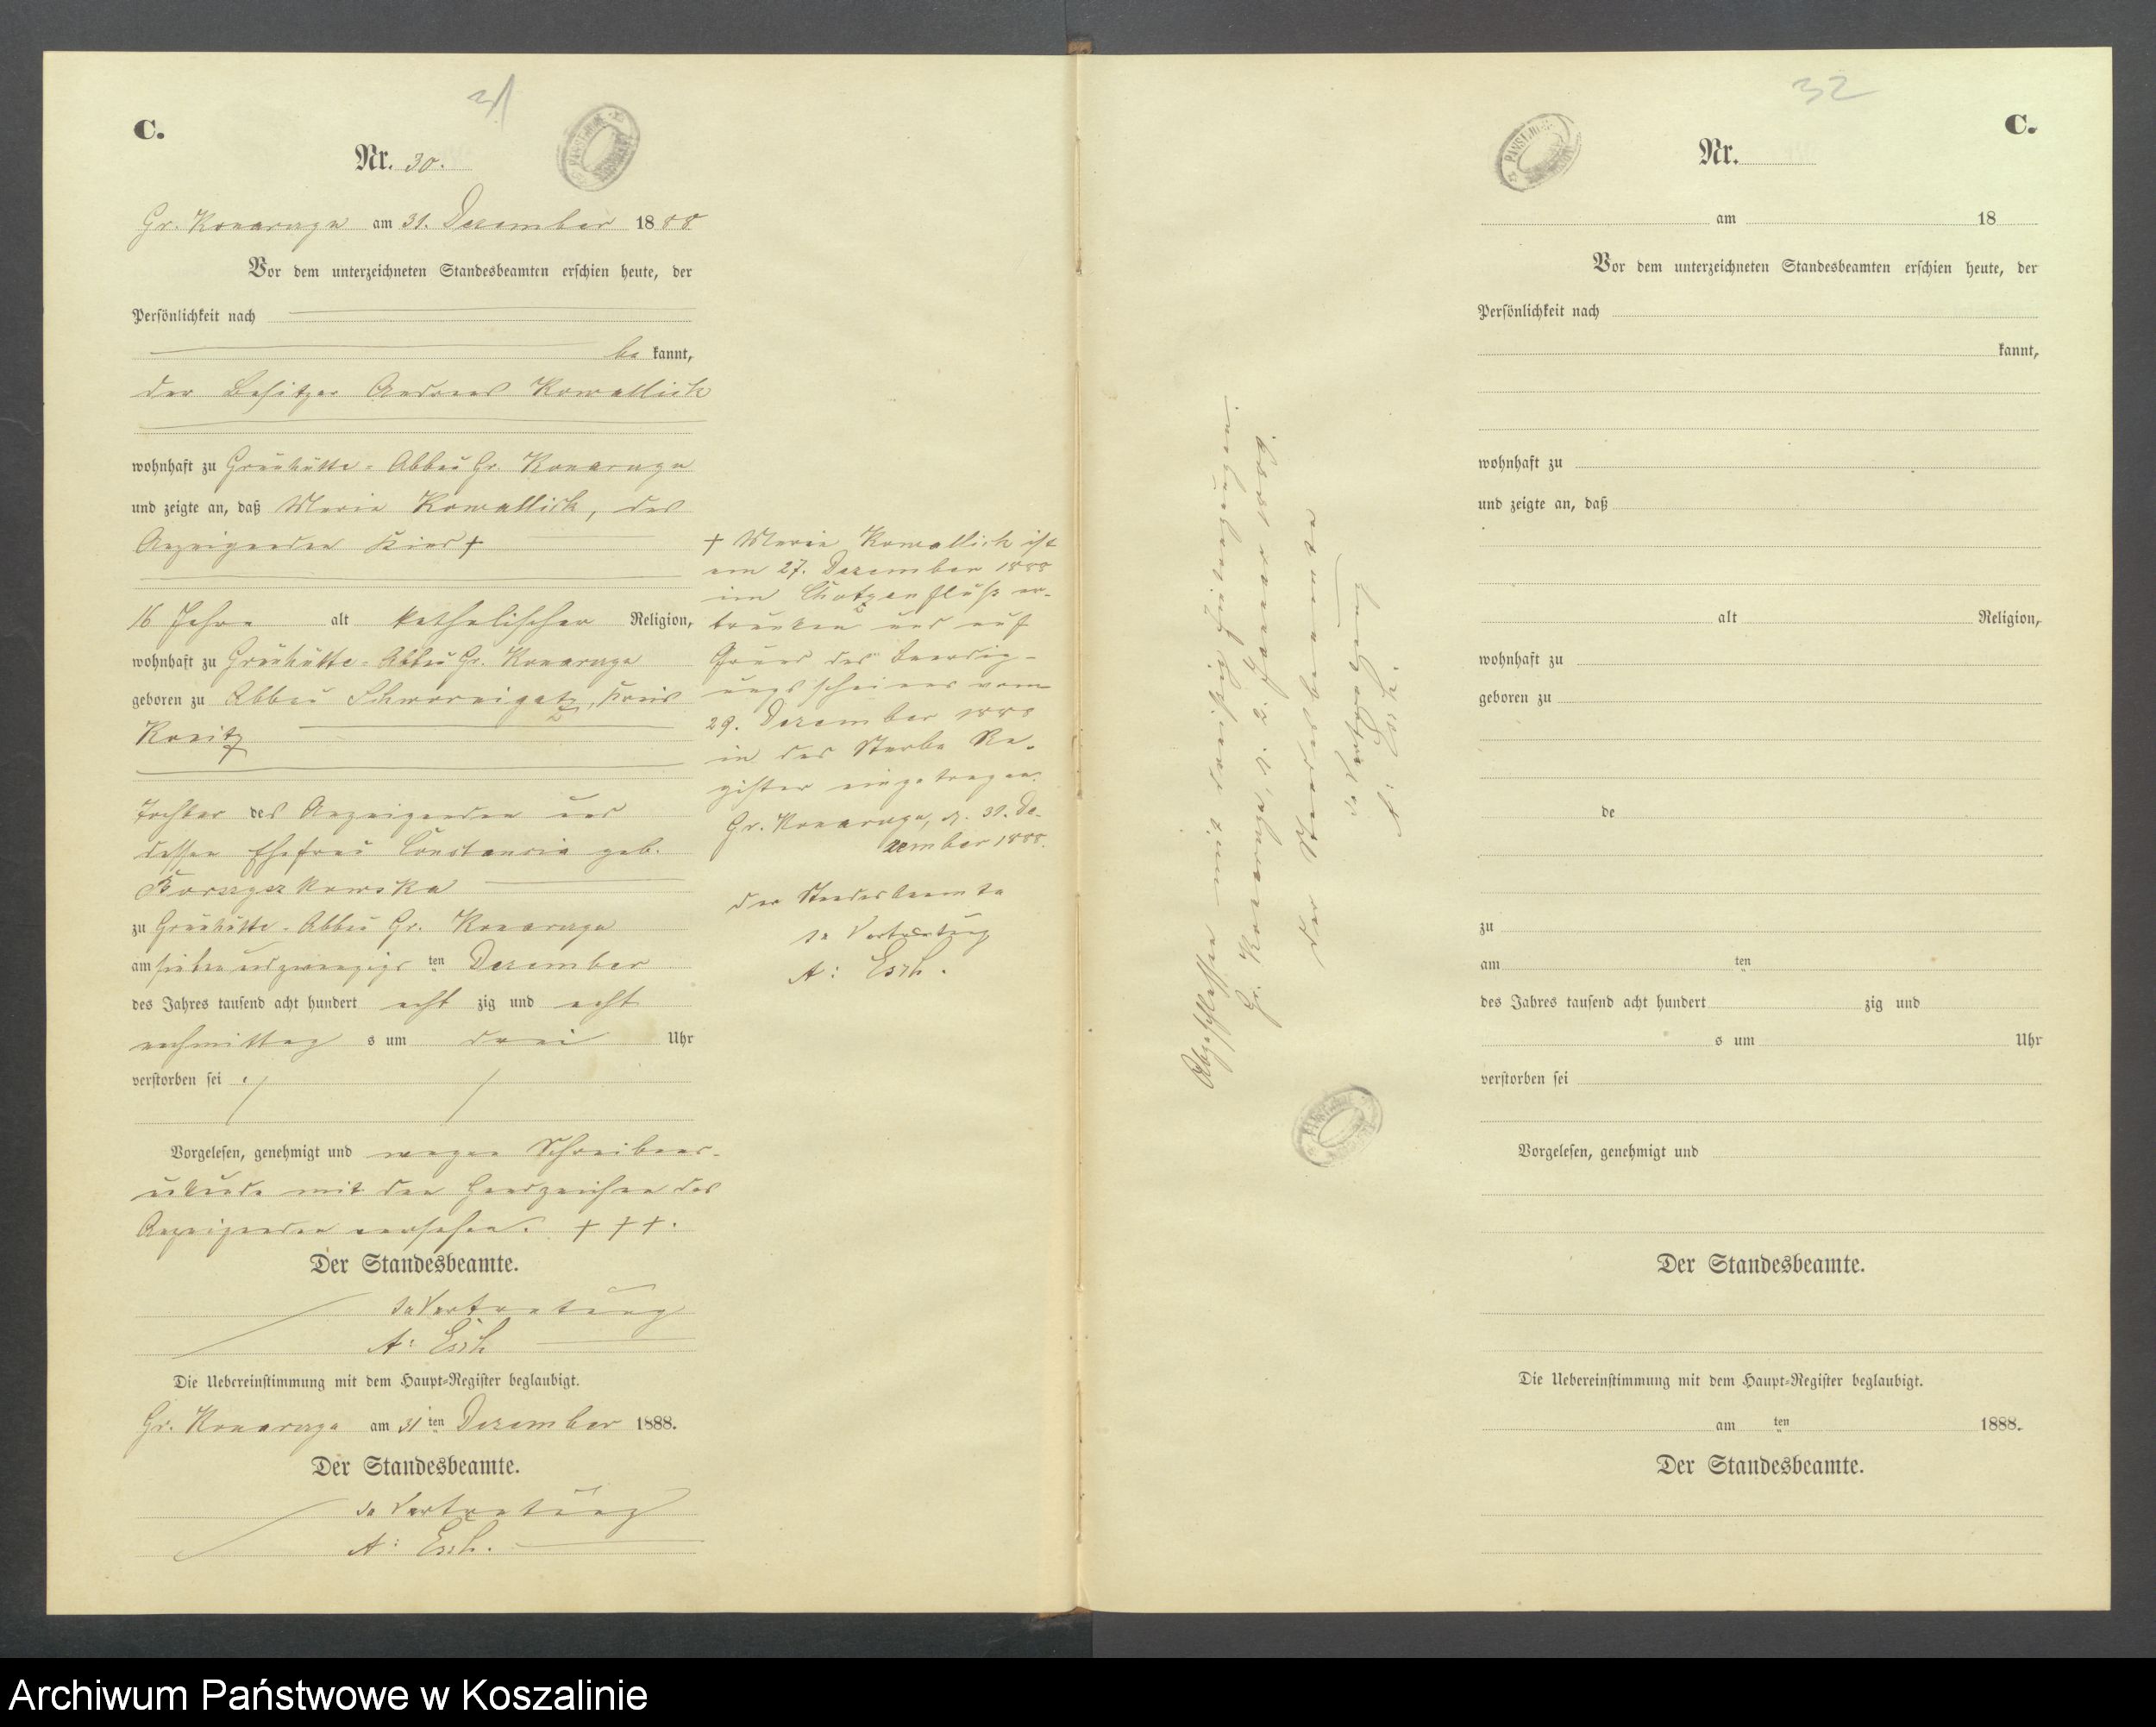 31
C.
Nr. 30.
Gr. Konarczyn am 31. Dezember 1888
Vor dem unterzeichneten Standesbeamten erschien heute, der
Persönlichkeit nach
be kannt,
der Besitzer Andreas Kowallick
wohnhaft zu Grünhütte-Abbau Gr. Konarczyn
und zeigte an, daß Maria Kowallick, des
Anzeigenden Kind +
16 Jahre alt katholischer Religion,
wohnhaft zu Grünhütte-Abbau Gr. Konarczyn
geboren zu Abbau Schwornigatz, Kreis
Konitz
Tochter des Anzeigenden und
dessen Ehefrau Constancia geb.
zu Grünhütte-Abbau Gr. Konarczyn
am siebenundzwanzigs ten Dezember
des Jahres tausend acht hundert acht zig und acht
nachmittag s um drei Uhr
verstorben sei ./.
Vorgelesen, genehmigt und wegen Schreibens-
unkunde mit den Handzeichen des
Anzeigenden versehen. + + +.
Der Standesbeamte.
In Vertretung
A: Esch
Die Uebereinstimmung mit dem Haupt-Register beglaubigt.
Gr. Konarczyn am 31 ten Dezember 1888.
Der Standesbeamte.
In Vertretung
A: Esch.
+ Maria Kowallick ist
am 27. Dezember 1888
im Chotzenfluß er-
trunken und auf
Grund des Beerdig-
ungsscheines vom
29. Dezember 1888
in das Sterbe Re-
gister eingetragen.
Gr. Konarczyn, d. 31. De-
zember 1888.
Der Standesbeamte
In Vertretung
A: Esch.
Abgeschlossen mit dreißig Eintragungen.
Gr. Konarczyn, d. 2. Januar 1889.
Der Standesbeamte
In Vertretung
A: Esch.
32
C.
Nr.
am 18
Vor dem unterzeichneten Standesbeamten erschien heute, der
Persönlichkeit nach
kannt,
wohnhaft zu
und zeigte an, daß
alt Religion,
wohnhaft zu
geboren zu
de
zu
am ten
des Jahres tausend acht hundert zig und
s um Uhr
verstorben sei
Vorgelesen, genehmigt und
Der Standesbeamte.
Die Uebereinstimmung mit dem Haupt-Register beglaubigt.
am ten 1888.
Der Standesbeamte.
Archiwum Państwowe w Koszalinie